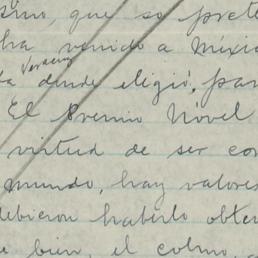 que se prete
ha venido a Méxic
Veracruz
da donde eligió, par
El Premio Nóvel
virtud de ser con
mundo, hay valores
debieron haberlo obten
bien, el colmo,